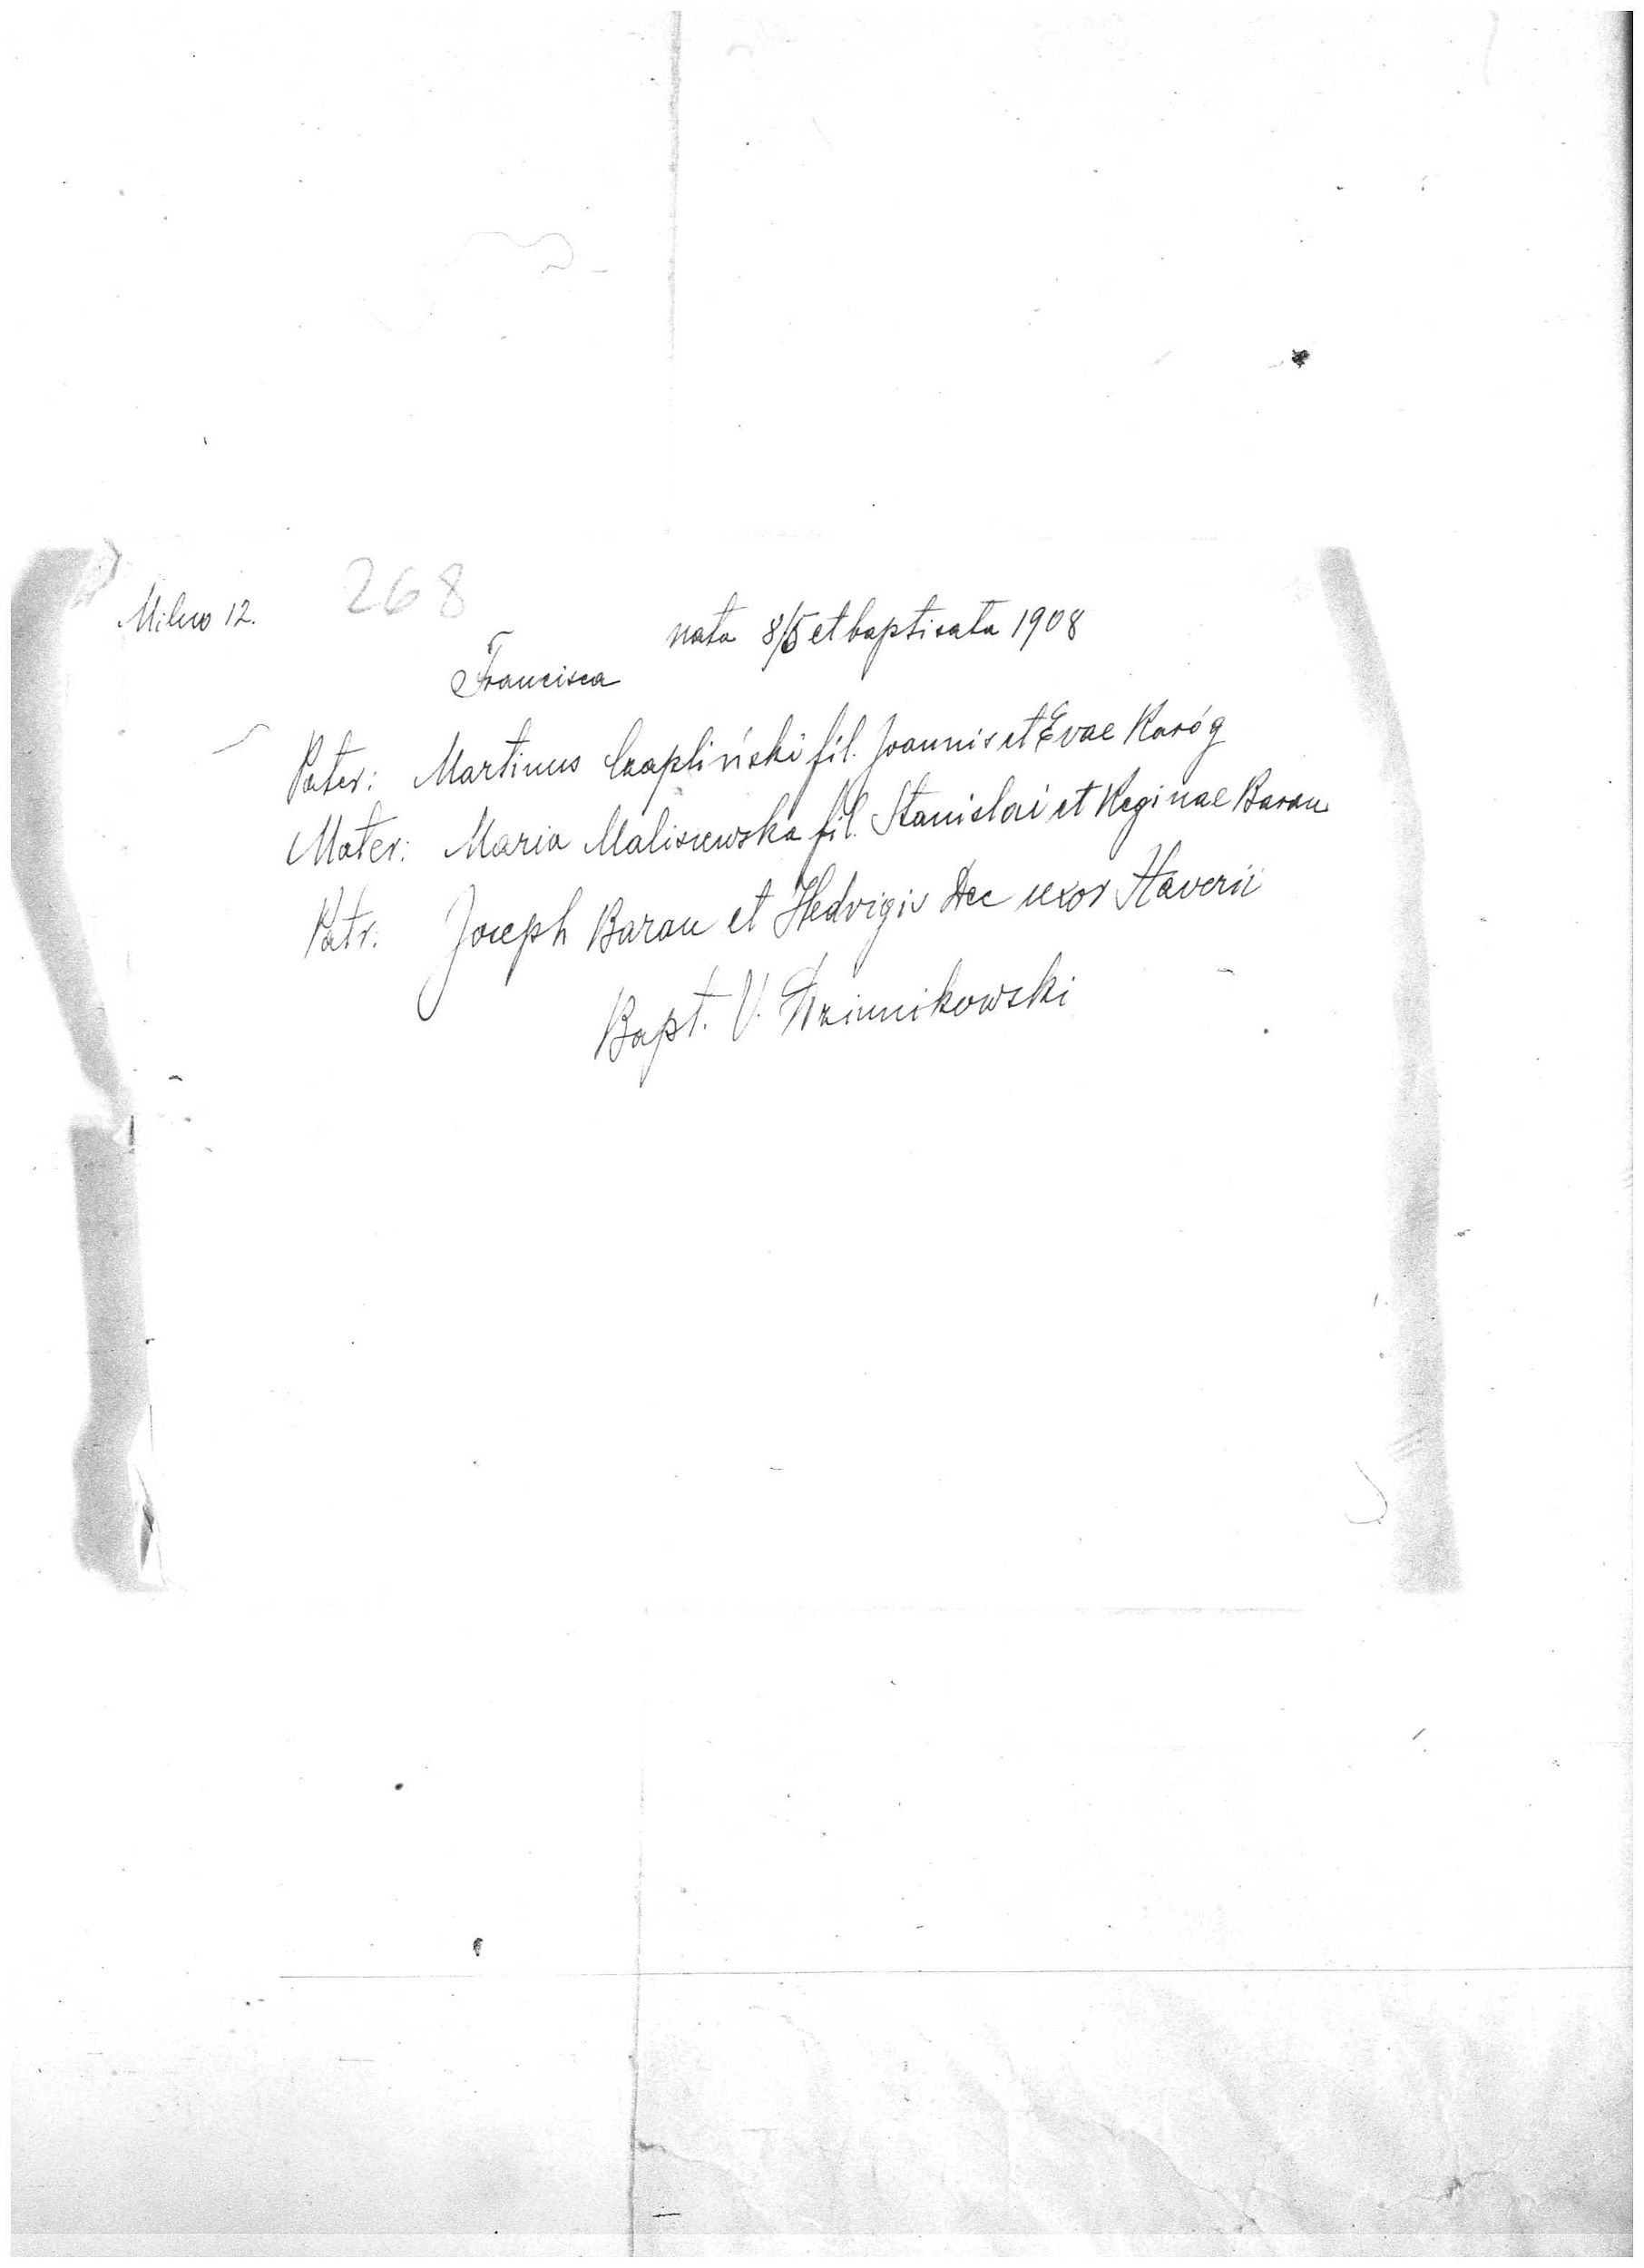 268
Milno 12.
nata 8/5 et baptisata 1908
Francisca
Pater: Martinus Czapliński fil. Joannis et Evae Karóg
Mater: Maria Maliszewska fil. Stanislai et Reginae Baran
Patr. Joseph Baran et Hedvigis Dec uxor Xaverii
Bapt. V. Dziunikowski